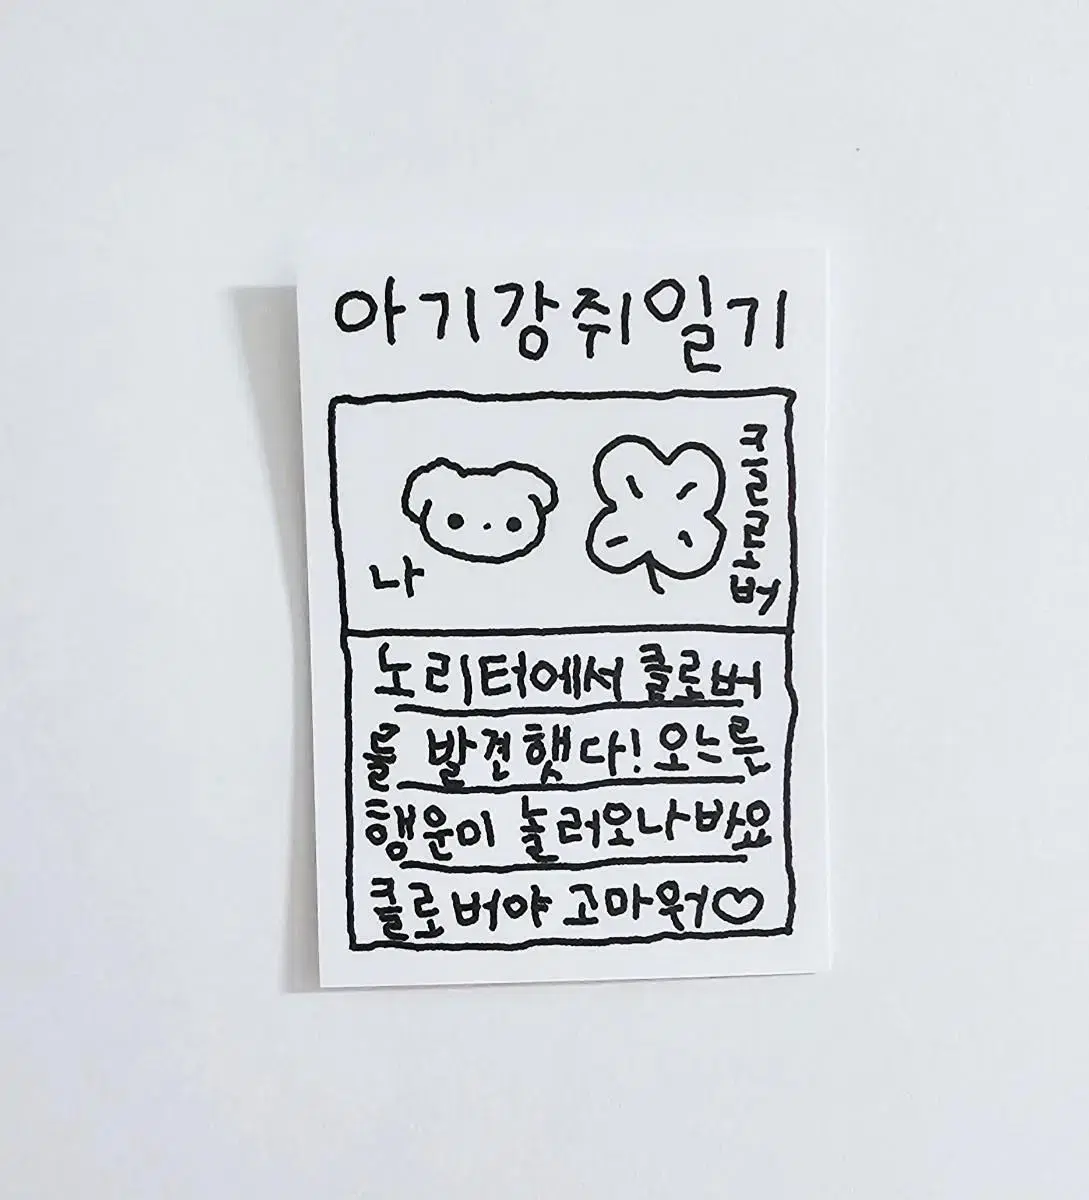 아기강쥐일기
나
노리터에서 클로버
를 발견햇다! 오느른
행운이 놀러오나바요
클로버야 고마워♡